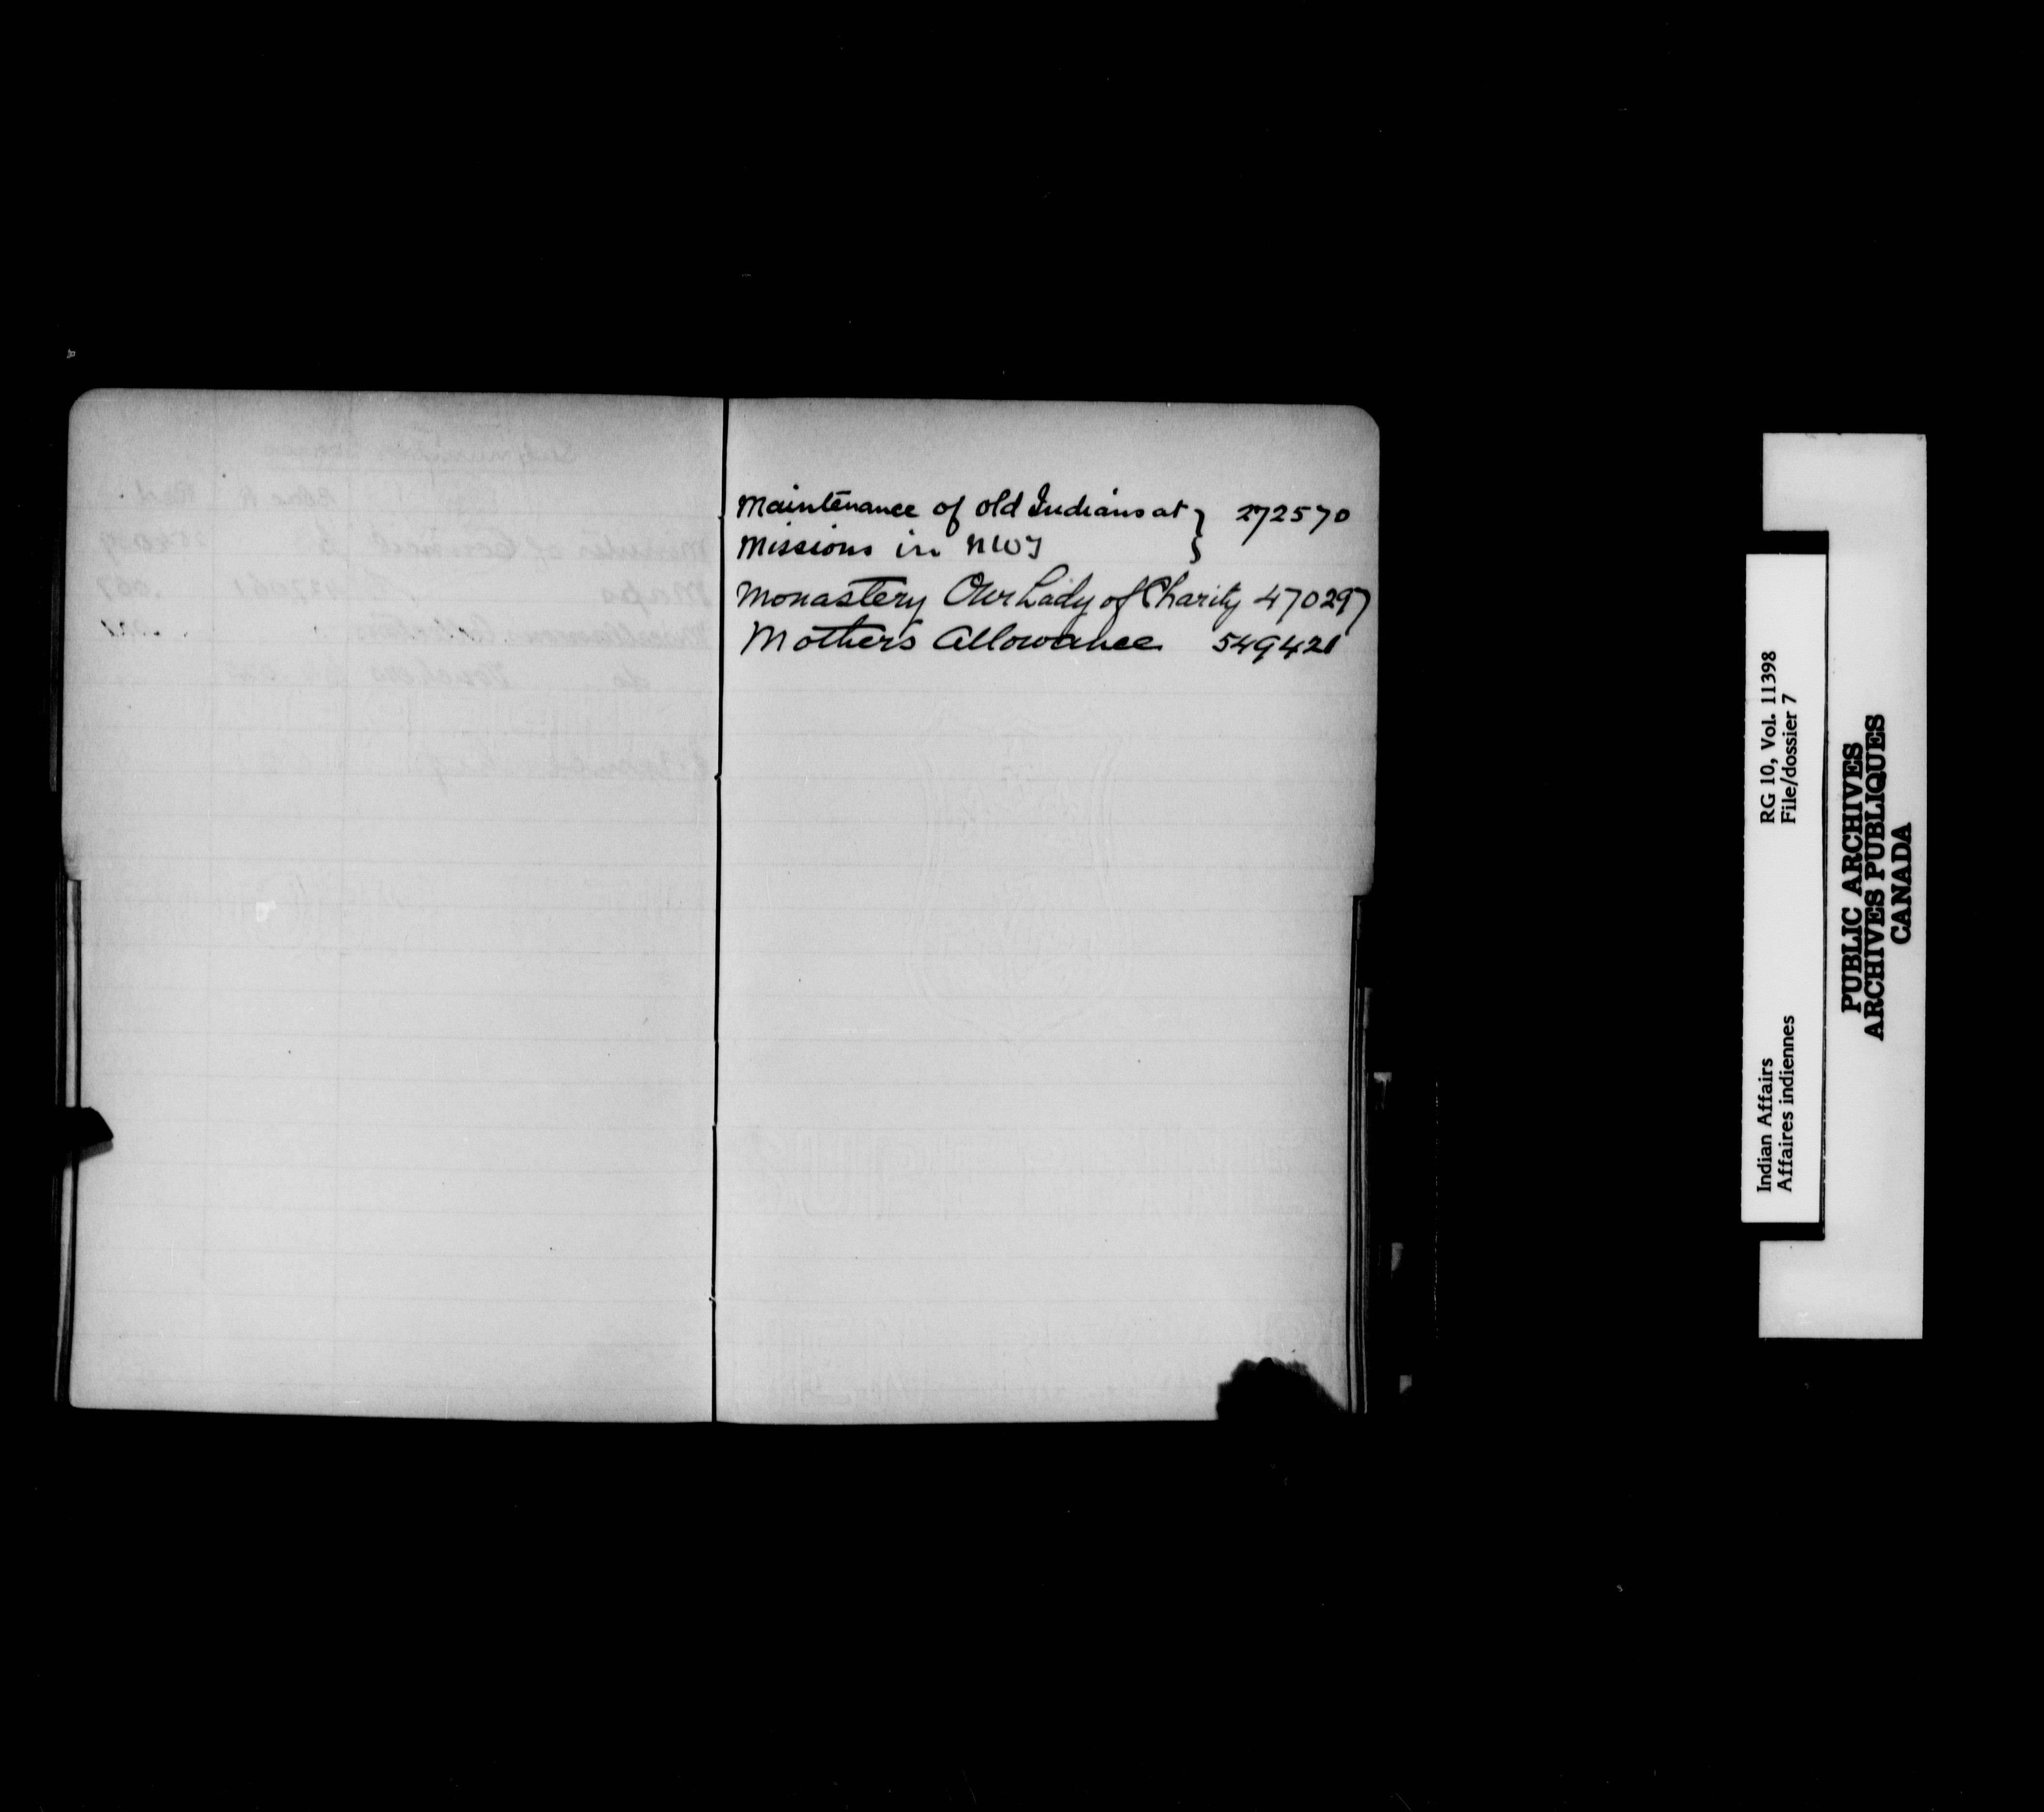 Maintenance of old Indians at } 272570
Missions in NWT
Monastery Our Lady of Charity 470297
Mother's Allowance 549421
Indian Affairs RG 10, Vol. 11398
Affaires indiennes File/dossier 7
PUBLIC ARCHIVES
ARCHIVES PUBLIQUES
CANADA